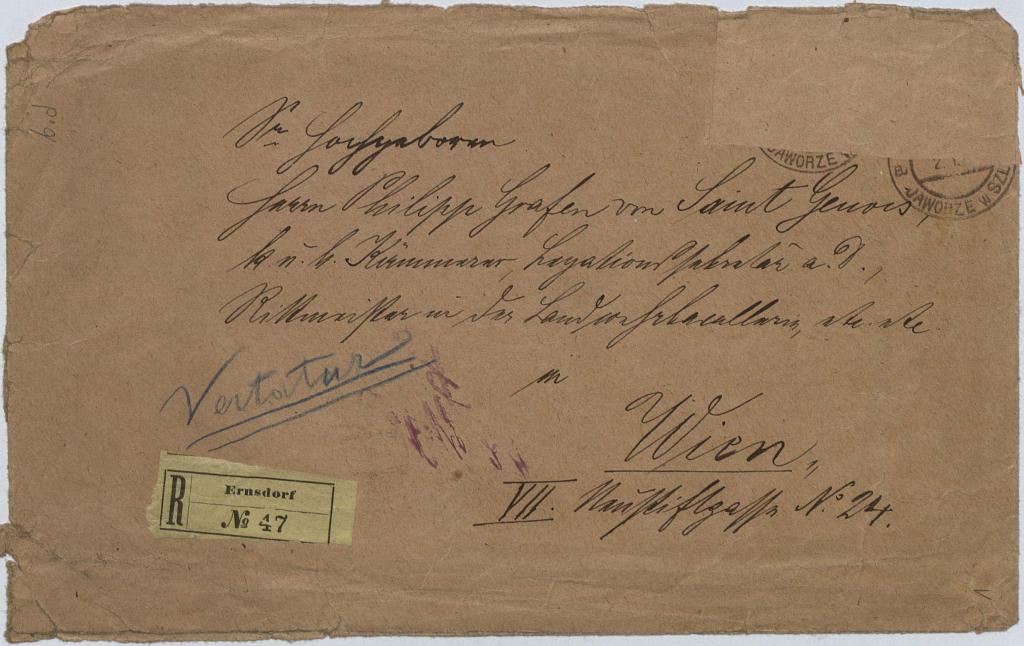 Sr. Hochgeboren
Herrn Philipp Grafen von Saint Genois,
k. u. k. Kämmerer, Legationssekretär a. D.,
Rittmeister in der Landwehrkavallerie, etc. etc.
in
Wien,
VII. Neustiftgasse No. 24.
Vertatur
R
Ernsdorf
No 47
JAWORZE
JAWORZE W SZL
B
bid